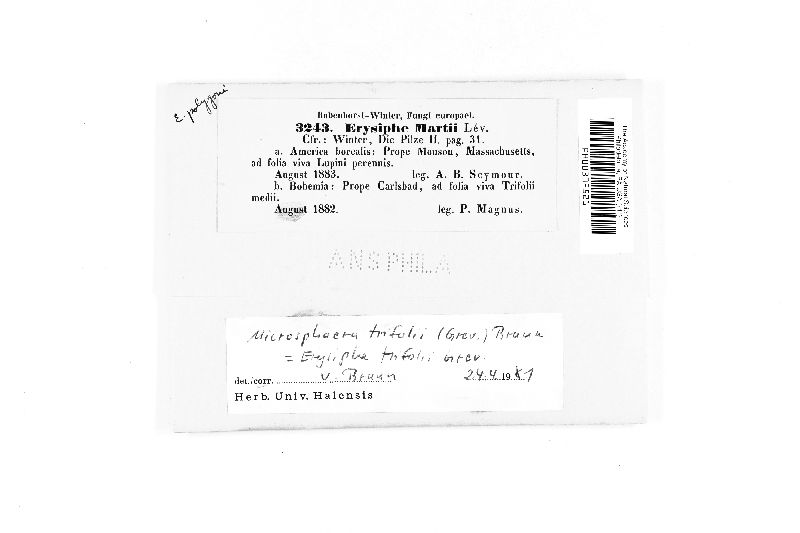 E. polygoni
Rabenhorst-Winter, Fungi europaei.
3243. Erysiphe Martii Lév.
Cfr.: Winter, Die Pilze II, pag. 31.
a. America borealis: Prope Monson, Massachusetts,
ad folia viva Lupini perennis.
August 1883. leg. A. B. Seymour.
b. Bohemia: Prope Carlsbad, ad folia viva Trifolii
medii.
August 1882. leg. P. Magnus.
ANSPHILA
Microsphaera trifolii (Grev.) Braun
= Erysiphe trifolii Grev.
det./corr. U. Braun 24.4.1981
Herb. Univ. Halensis